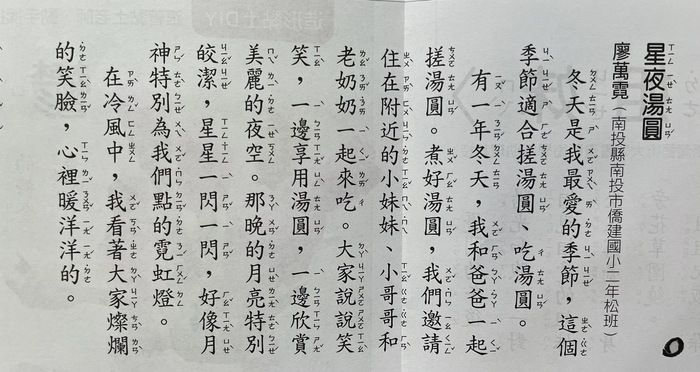 星夜湯圓
廖萬霓（南投縣南投市僑建國小二年松班）
冬天是我最愛的季節，這個
季節適合搓湯圓、吃湯圓。
有一年冬天，我和爸爸一起
搓湯圓。煮好湯圓，我們邀請
住在附近的小妹妹、小哥哥和
老奶奶一起來吃。大家說說笑
笑，一邊享用湯圓，一邊欣賞
美麗的夜空。那晚的月亮特別
皎潔，星星一閃一閃，好像月
神特別為我們點的霓虹燈。
在冷風中，我看著大家燦爛
的笑臉，心裡暖洋洋的。